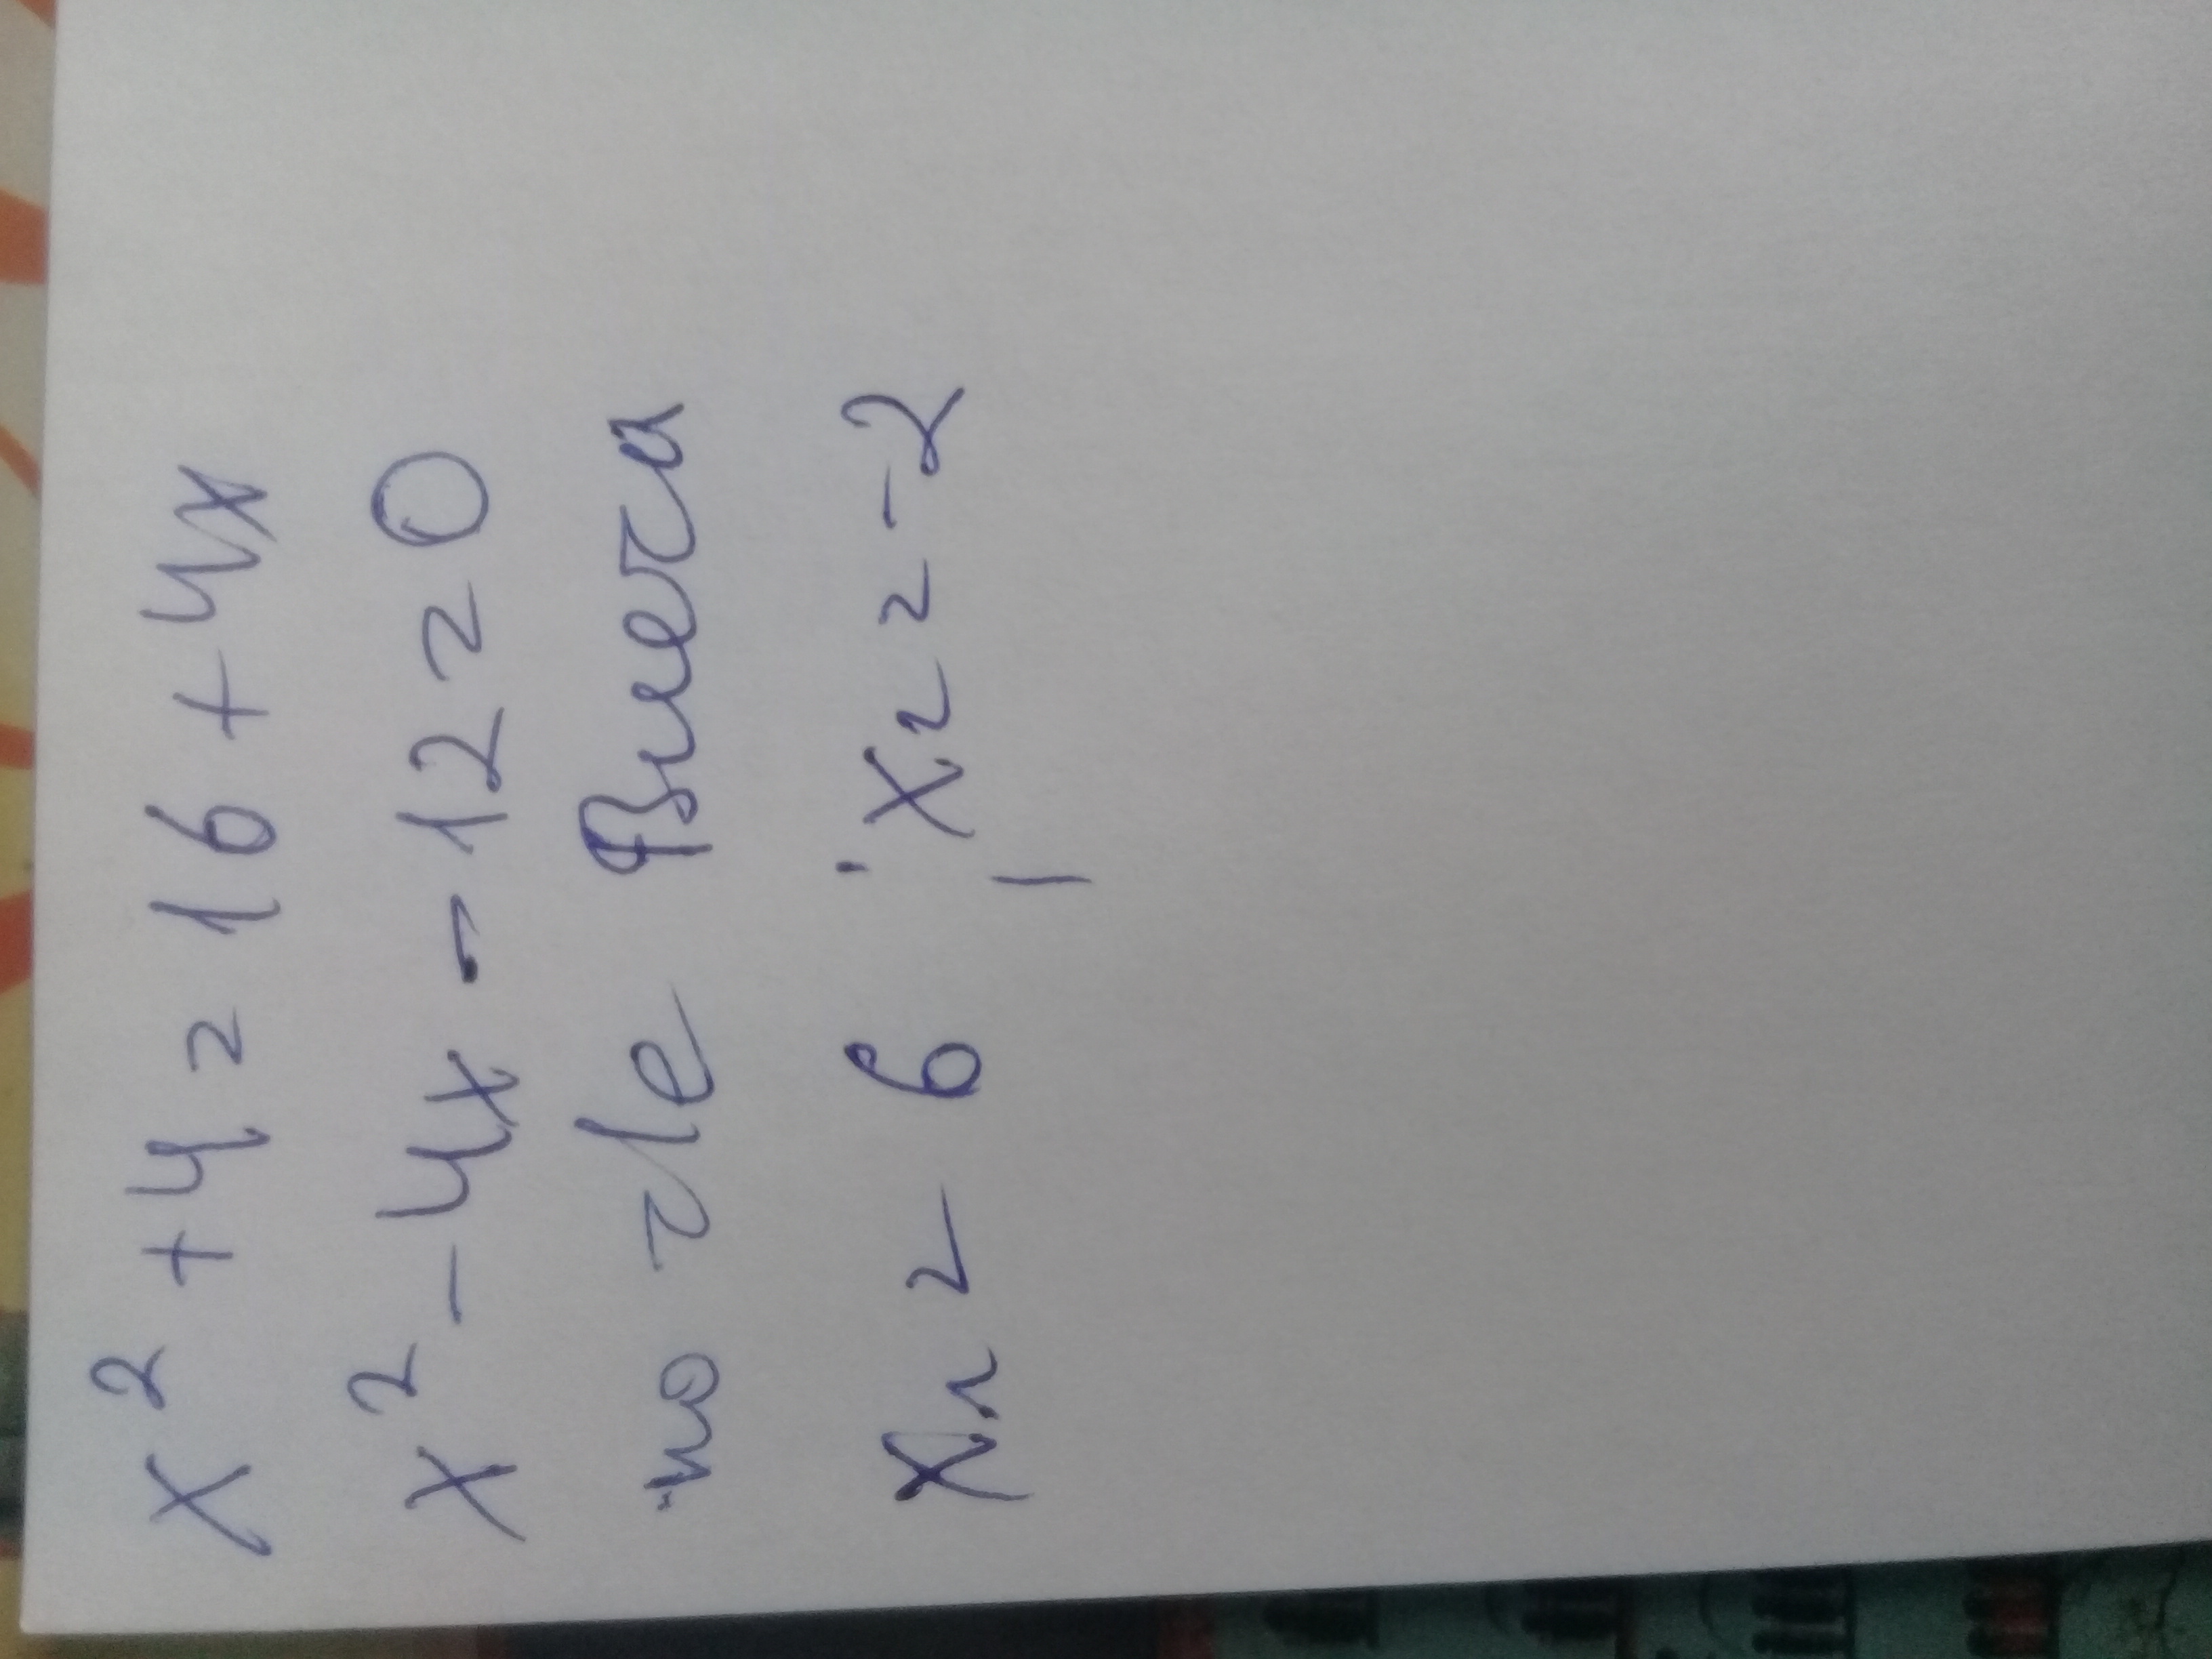 x² + 4 = 16 + 4x
x² - 4x - 12 = 0
по т/е Виета
x₁ = 6, x₂ = -2